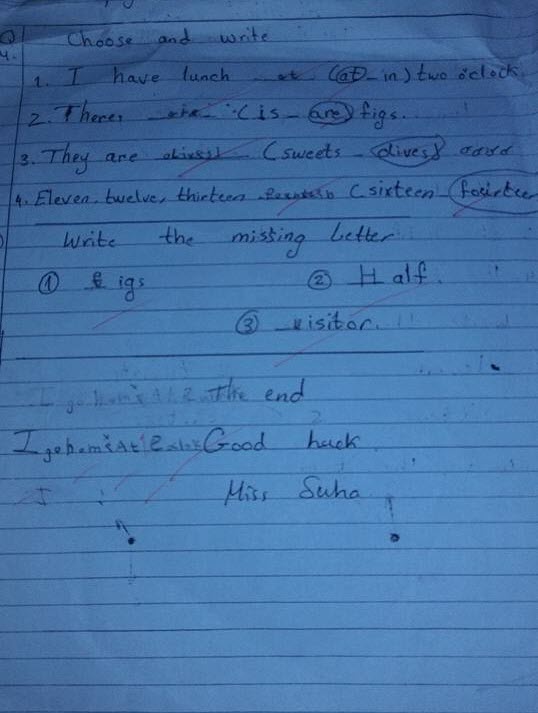 Q
4. Choose and write
1. I have lunch at (at - in) two o'clock
2. There are (is - are) figs.
3. They are (sweets - olives)
4. Eleven, twelve, thirteen (sixteen
Write the missing letter
① f igs ② H alf.
③ v isitor.
The end
I go home At Good hack
Miss Suha